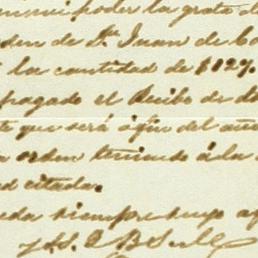 poder la grata d
den de Dn. Juan de Co
la cantidad de $127.
pagado el Recibo de d
te que será á fin del año
a orden teniendo á la
ed citada.
eda siempre suyo af
S. Q. B. S. M.